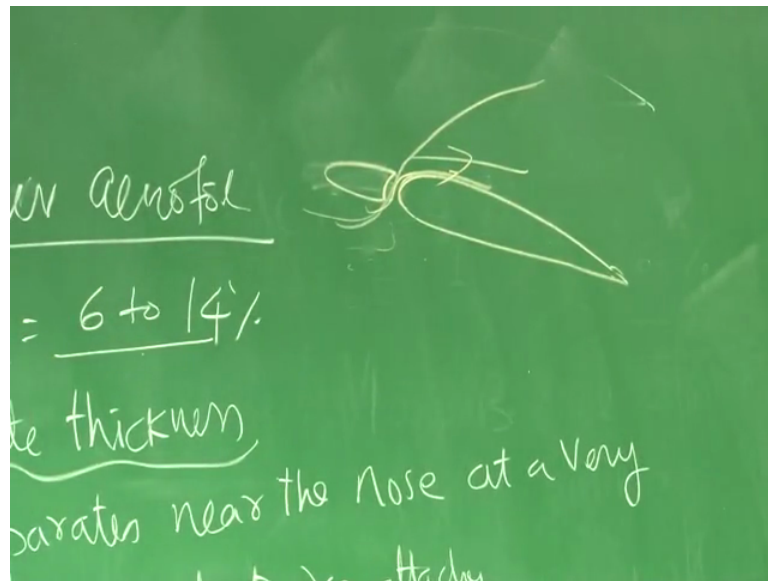 aerofoil
= 6 to 14%
te thickness
parates near the nose at a very